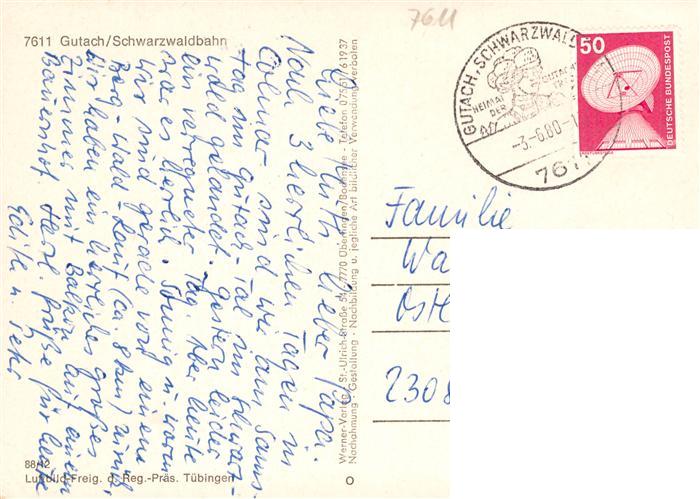 7611 Gutach/Schwarzwaldbahn
7611
GUTACH, SCHWARZWALD
HEIMAT
DER
-3.-6.80-1
7611
50
DEUTSCHE BUNDESPOST
Liebe Ruth, lieber Papa.
Nach 3 herrlichen Tagen in
Colmar sind wir am Sams-
tag im Gutach-Tal im Schwarz-
wald gelandet. Gestern leider
ein verregneter Tag. Aber heute
war es herrlich. Sonnig u. warm
Wir sind gerade von einem
Berg-Wald-Lauf (ca. 8 km) zurück.
Wir haben ein herrliches großes
Zimmer mit Balkon auf einem
Bauernhof. Herzl. Grüße für heute
Edith u. Peter
Werner-Verlag · St.-Ulrich-Straße 54 · 7770 Überlingen/Bodensee · Telefon 07551/61937
Nachahmung · Gestaltung · Nachbildung u. jegliche Art bildlicher Verwendung verboten
Familie
Wa
Oste
2308
88/12
Luftbild-Freig. d. Reg.-Präs. Tübingen